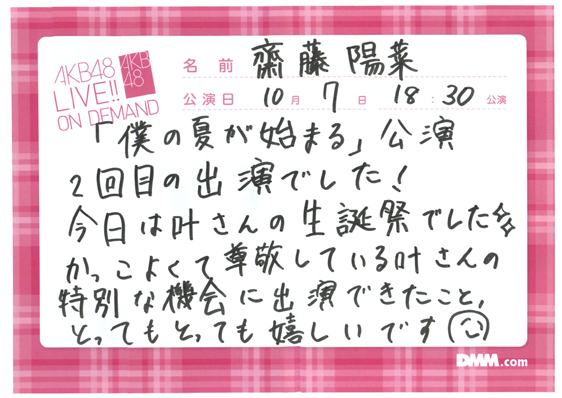 AKB48
LIVE!!
ON DEMAND
AKB
48
名前 齋藤 陽菜
公演日 10月 7日 18:30公演
「僕の夏が始まる」公演
2回目の出演でした!
今日は叶さんの生誕祭でした
かっこよくて尊敬している叶さんの
特別な機会に出演できたこと、
とってもとっても嬉しいです
DMM.com